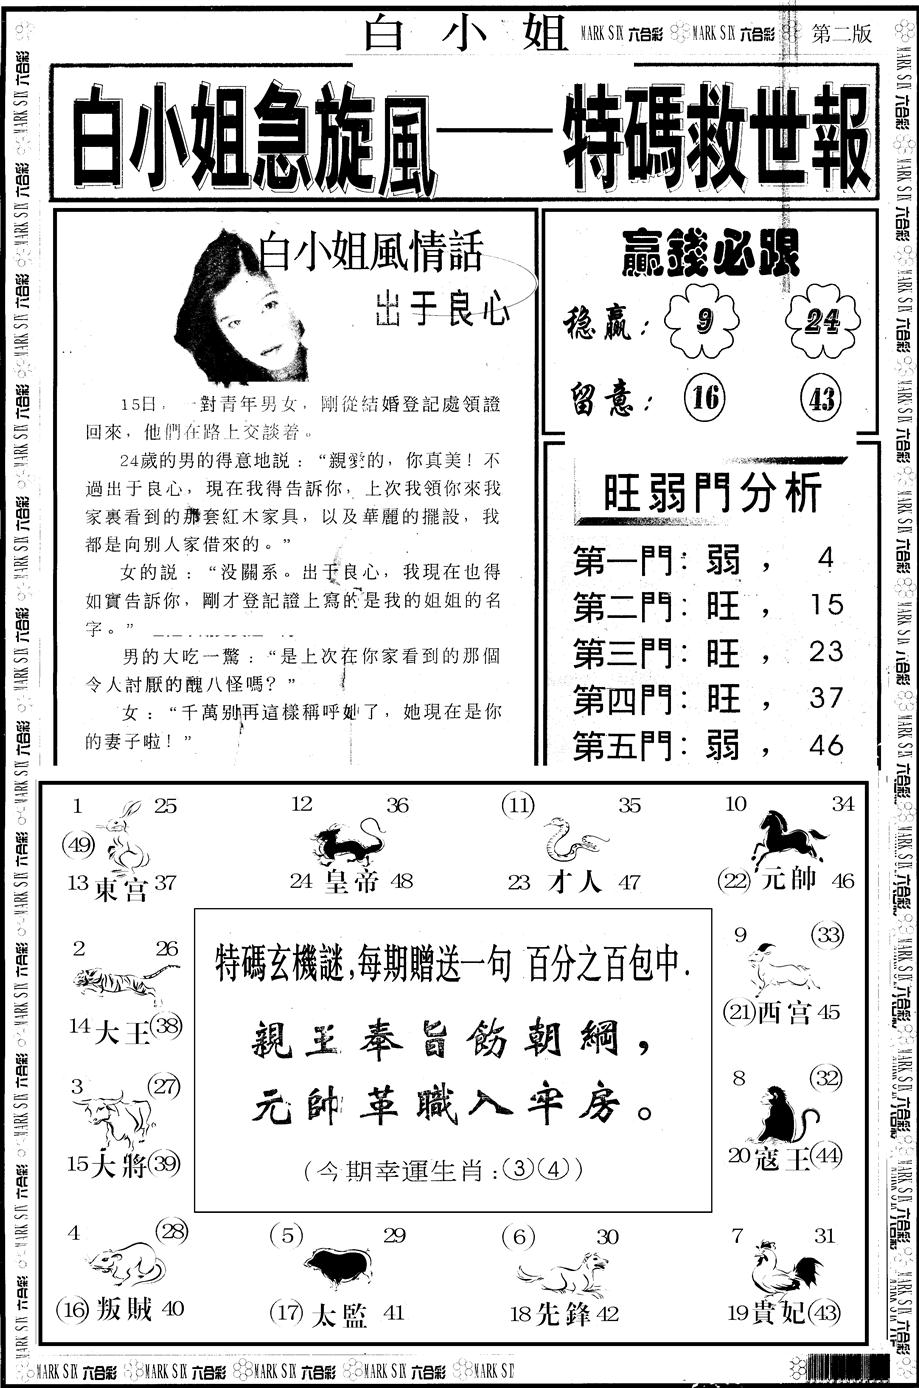 白小姐 MARK SIX 六合彩 MARK SIX 六合彩 第二版
白小姐急旋風——特碼救世報
白小姐風情話
出于良心
15日，一對青年男女，剛從結婚登記處領證
回來，他們在路上交談着。
24歲的男的得意地説：“親愛的，你真美！不
過出于良心，現在我得告訴你，上次我領你來我
家裏看到的那套紅木家具，以及華麗的擺設，我
都是向别人家借來的。”
女的説：“没關系。出于良心，我現在也得
如實告訴你，剛才登記證上寫的是我的姐姐的名
字。”
男的大吃一驚：“是上次在你家看到的那個
令人討厭的醜八怪嗎？”
女：“千萬别再這樣稱呼她了，她現在是你
的妻子啦！”
贏錢必跟
稳贏： 9 24
留意： 16 43
旺弱門分析
第一門：弱， 4
第二門：旺， 15
第三門：旺， 23
第四門：旺， 37
第五門：弱， 46
1 25
49
13 東宫 37
12 36
24 皇帝 48
11 35
23 才人 47
10 34
22 元帥 46
2 26
14 大王 38
3 27
15 大將 39
特碼玄機謎,每期贈送一句 百分之百包中.
親王奉旨飭朝綱，
元帥革職入牢房。
(今期幸運生肖:③④)
9 33
21 西宫 45
8 32
20 寇王 44
4 28
16 叛賊 40
5 29
17 太監 41
6 30
18 先鋒 42
7 31
19 貴妃 43
MARK SIX 六合彩 MARK SIX 六合彩 MARK SIX 六合彩 MARK SIX 六合彩 MARK SIX